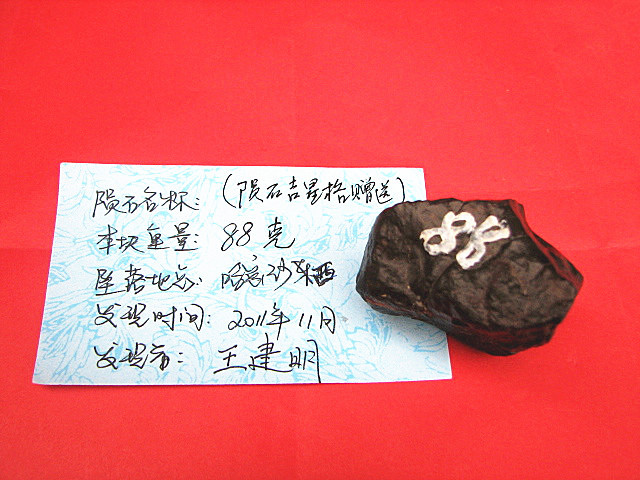 陨石名称: (陨石吉星格赠送)
本块重量: 88克
坠落地点: 哈密沙
发现时间: 2011年11月
发现者: 王建明
88